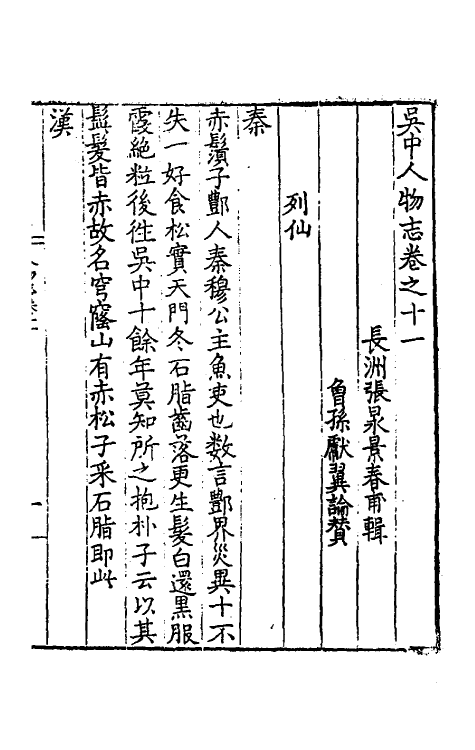 吳中人物志卷之十一
長洲張㫤景春甫輯
曾孫獻翼論贊
列仙
秦
赤鬚子酆人秦穆公主魚吏也数言酆界災異十不
失一好食松實天門冬石脂齒落更生髮白還黑服
霞絕粒後徃吳中十餘年莫知所之抱朴子云以其
髭髮皆赤故名穹窿山有赤松子采石脂即此
漢